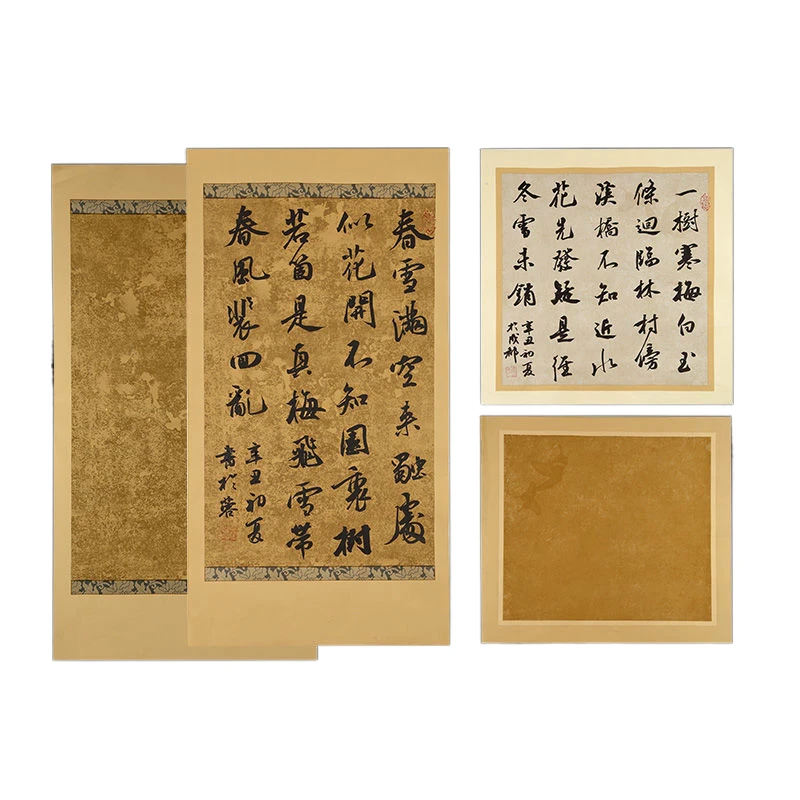 春雪滿空來觸處
似花開不知園裏樹
若箇是真梅飛雪帶
春風裴回亂
辛丑初夏
書於蓉
一樹寒梅白玉
條迴臨林村傍
溪橋不知近水
花先發疑是經
冬雪未銷
辛丑初夏
於成都